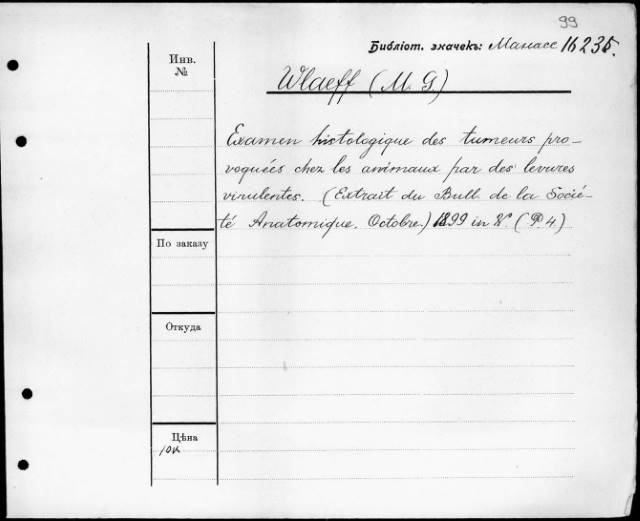 99
Библіот. значекъ: Манасс 16235.
Инв.
№
Wlaeff (M. G.)
Examen histologique des tumeurs pro-
voquées chez les animaux par des levures
virulentes. (Extrait du Bull. de la Socié-
té Anatomique. Octobre.) 1899 in 8°. (P. 4.)
По заказу
Откуда
Цѣна
10к